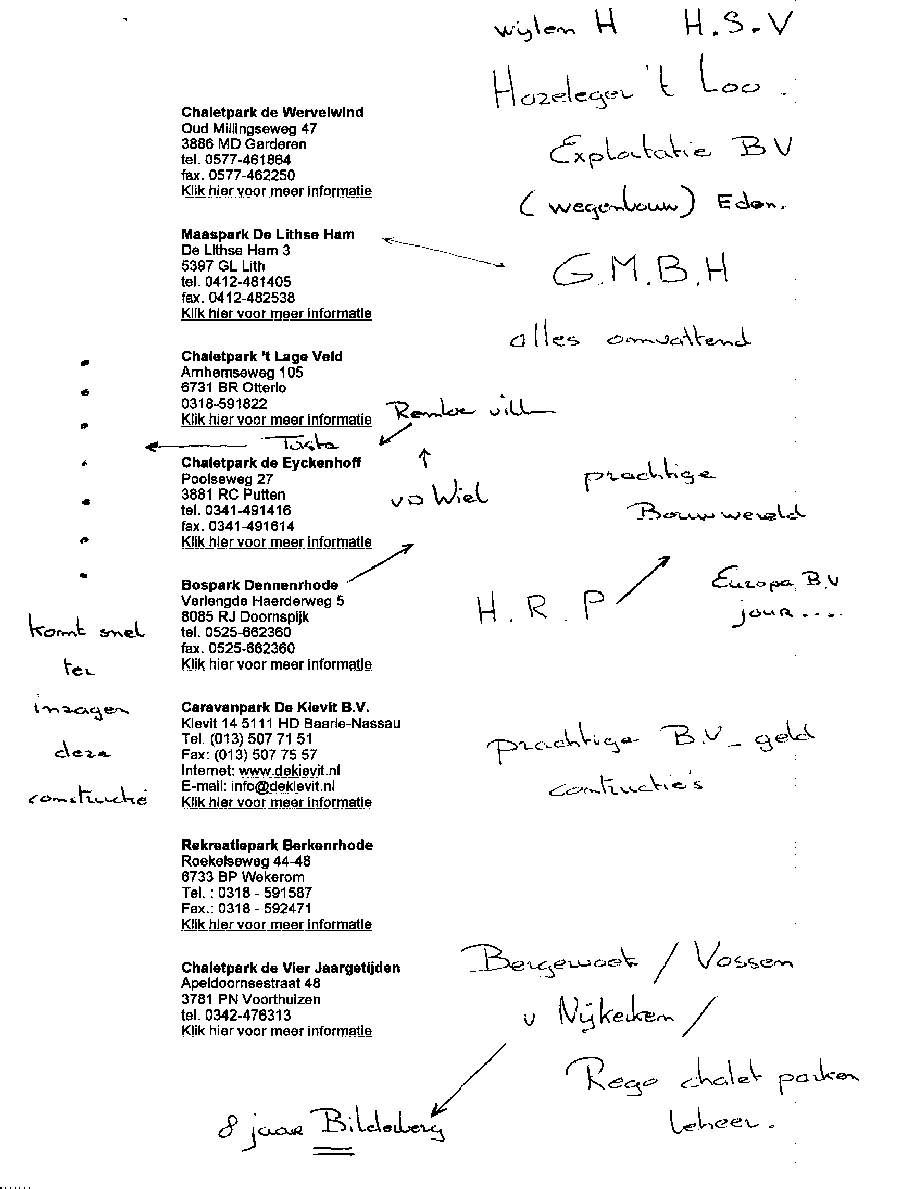 wijlen H H.S.V
Hazeleger 't Loo.
Exploitatie BV
(wegenbouw) Eden.
Chaletpark de Wervelwind
Oud Millingseweg 47
3886 MD Garderen
tel. 0577-461864
fax. 0577-462250
Klik hier voor meer informatie
Maaspark De Lithse Ham
De Lithse Ham 3
5397 GL Lith
tel. 0412-481405
fax. 0412-482538
Klik hier voor meer informatie
G.M.B.H
alles omvattend
Chaletpark 't Lage Veld
Arnhemseweg 105
6731 BR Otterlo
0318-591822
Klik hier voor meer informatie
Chaletpark de Eyckenhoff
Poolseweg 27
3881 RC Putten
tel. 0341-491416
fax. 0341-491614
Klik hier voor meer informatie
vd Wiel
prachtige
Bouwwereld
Bospark Dennenrhode
Verlengde Haerderweg 5
8085 RJ Doornspijk
tel. 0525-662360
fax. 0525-662360
Klik hier voor meer informatie
H.R.P
Europa B.V
jour....
komt snel
ter
inzagen
deze
constructie
Caravanpark De Kievit B.V.
Kievit 14 5111 HD Baarle-Nassau
Tel. (013) 507 71 51
Fax: (013) 507 75 57
Internet: www.dekievit.nl
E-mail: info@dekievit.nl
Klik hier voor meer informatie
prachtige B.V - geld
contructie's
Rekreatiepark Berkenrhode
Roekelseweg 44-48
6733 BP Wekerom
Tel. : 0318 - 591587
Fax.: 0318 - 592471
Klik hier voor meer informatie
Chaletpark de Vier Jaargetijden
Apeldoornsestraat 48
3781 PN Voorthuizen
tel. 0342-476313
Klik hier voor meer informatie
/ Vossen
v Nijkerken /
Rego chalet parken
beheer.
8 jaar Bilderberg